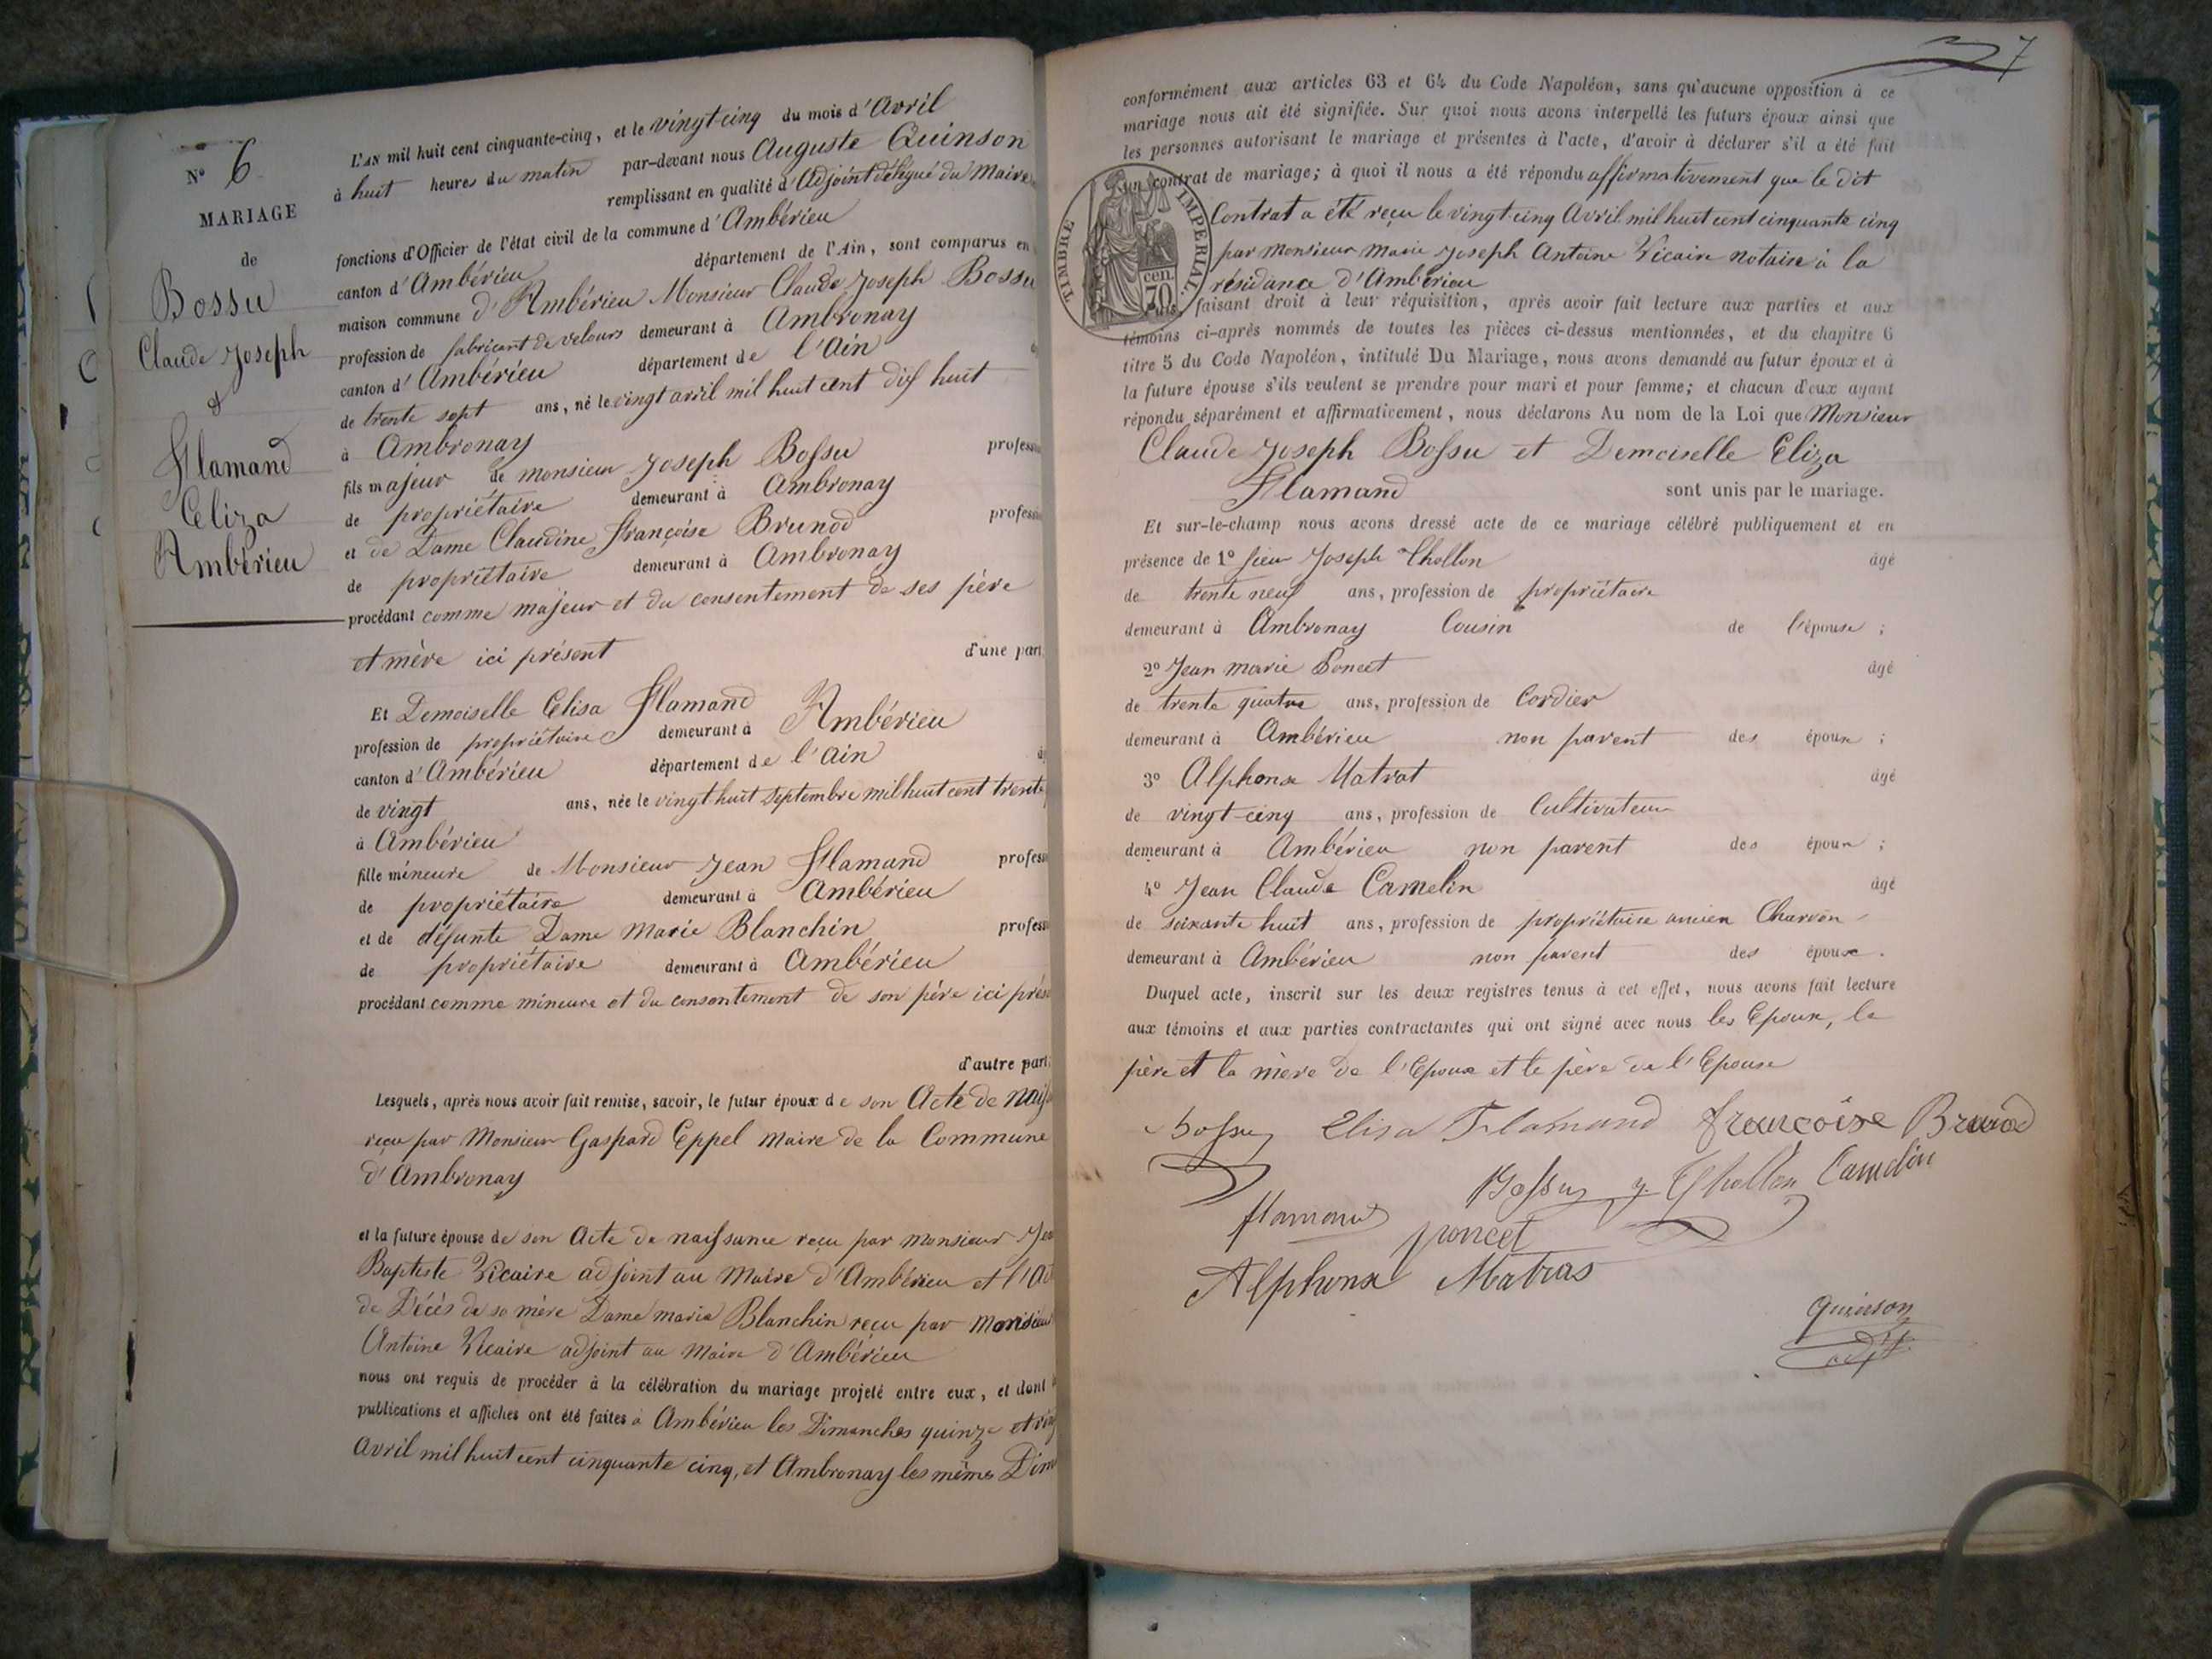 N° 6
MARIAGE
de
Bossu
Claude Joseph
&
Flamand
Eliza
Ambérieu
L'AN mil huit cent cinquante-cinq, et le vingt-cinq du mois d'Avril
à huit heures du matin par-devant nous Auguste Quinson
remplissant en qualité d'Adjoint délégué du Maire
fonctions d'Officier de l'état civil de la commune d'Ambérieu
canton d'Ambérieu département de l'Ain, sont comparus en
maison commune d'Ambérieu Monsieur Claude Joseph Bossu
profession de fabricant de velours demeurant à Ambronay
canton d'Ambérieu département de l'Ain
de trente sept ans, né le vingt avril mil huit cent dix huit
à Ambronay
fils majeur de monsieur Joseph Bossu profession
de propriétaire demeurant à Ambronay
et de Dame Claudine françoise Brunod profession
de propriétaire demeurant à Ambronay
procédant comme majeur et du consentement de ses père
et mère ici présent d'une part,
Et Demoiselle Elisa Flamand
profession de propriétaire demeurant à Ambérieu
canton d'Ambérieu département de l'Ain
de vingt ans, née le vingt huit septembre mil huit cent trente
à Ambérieu
fille mineure de Monsieur Jean Flamand profess
de propriétaire demeurant à Ambérieu
et de défunte Dame Marie Blanchin profess
de propriétaire demeurant à Ambérieu
procédant comme mineure et du consentement de son père ici prés
d'autre part;
Lesquels, après nous avoir fait remise, savoir, le futur époux de son Acte de naiss
reçu par Monsieur Gaspard Eppel maire de la Commune
d'Ambronay
et la future épouse de son Acte de naissance reçu par monsieur Jea
Baptiste Vicaire adjoint au Maire d'Ambérieu et l'Act
de Décès de sa mère Dame maria Blanchin reçu par Monsieur
Antoine Vicaire adjoint au Maire d'Ambérieu
nous ont requis de procéder à la célébration du mariage projeté entre eux, et dont
publications et affiches ont été faites à Ambérieu les Dimanches quinze et ving
Avril mil huit cent cinquante cinq, et Ambronay les mêmes Dim
7
conformément aux articles 63 et 64 du Code Napoléon, sans qu'aucune opposition à ce
mariage nous ait été signifiée. Sur quoi nous avons interpellé les futurs époux ainsi que
les personnes autorisant le mariage et présentes à l'acte, d'avoir à déclarer s'il a été fait
un contrat de mariage; à quoi il nous a été répondu affirmativement que le dit
Contrat a été reçu le vingt-cinq Avril mil huit cent cinquante cinq
par Monsieur Marie Joseph Antoine Vicaire notaire à la
résidance d'Ambérieu
TIMBRE IMPÉRIAL
70 cen.
faisant droit à leur réquisition, après avoir fait lecture aux parties et aux
témoins ci-après nommés de toutes les pièces ci-dessus mentionnées, et du chapitre 6
titre 5 du Code Napoléon, intitulé Du Mariage, nous avons demandé au futur époux et à
la future épouse s'ils veulent se prendre pour mari et pour femme; et chacun d'eux ayant
répondu séparément et affirmativement, nous déclarons Au nom de la Loi que Monsieur
Claude Joseph Bossu et Demoiselle Eliza
Flamand sont unis par le mariage.
Et sur-le-champ nous avons dressé acte de ce mariage célébré publiquement et en
présence de 1° sieur Joseph Thollon âgé
de trente neuf ans, profession de propriétaire
demeurant à Ambronay Cousin de l'épouse;
2° Jean marie Poncet âgé
de trente quatre ans, profession de Cordier
demeurant à Ambérieu non parent des époux;
3° Alphonse Matrat âgé
de vingt-cinq ans, profession de Cultivateur
demeurant à Ambérieu non parent des époux;
4° Jean Claude Camelin âgé
de soixante huit ans, profession de propriétaire ancien Charron
demeurant à Ambérieu non parent des époux.
Duquel acte, inscrit sur les deux registres tenus à cet effet, nous avons fait lecture
aux témoins et aux parties contractantes qui ont signé avec nous les Epoux, le
père et la mère de l'Epoux et le père de l'Epouse
Bossu Elisa Flamand françoise Brunod
Bossu J. Thollon Camelin
flamand poncet
Alphonse Matras
Quinson
adjt.